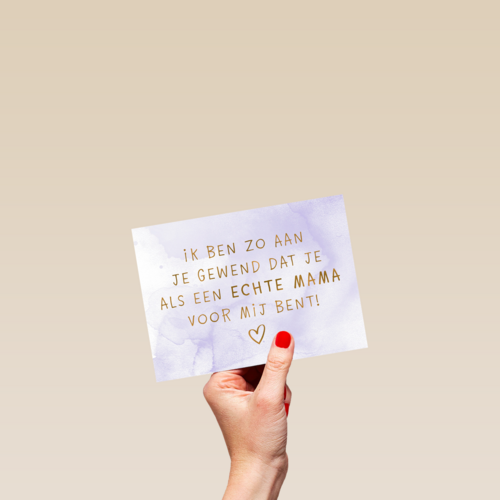 iK BEN ZO AAN
JE GEWEND DAT JE
ALS EEN ECHTE MAMA
VOOR MiJ BENT!